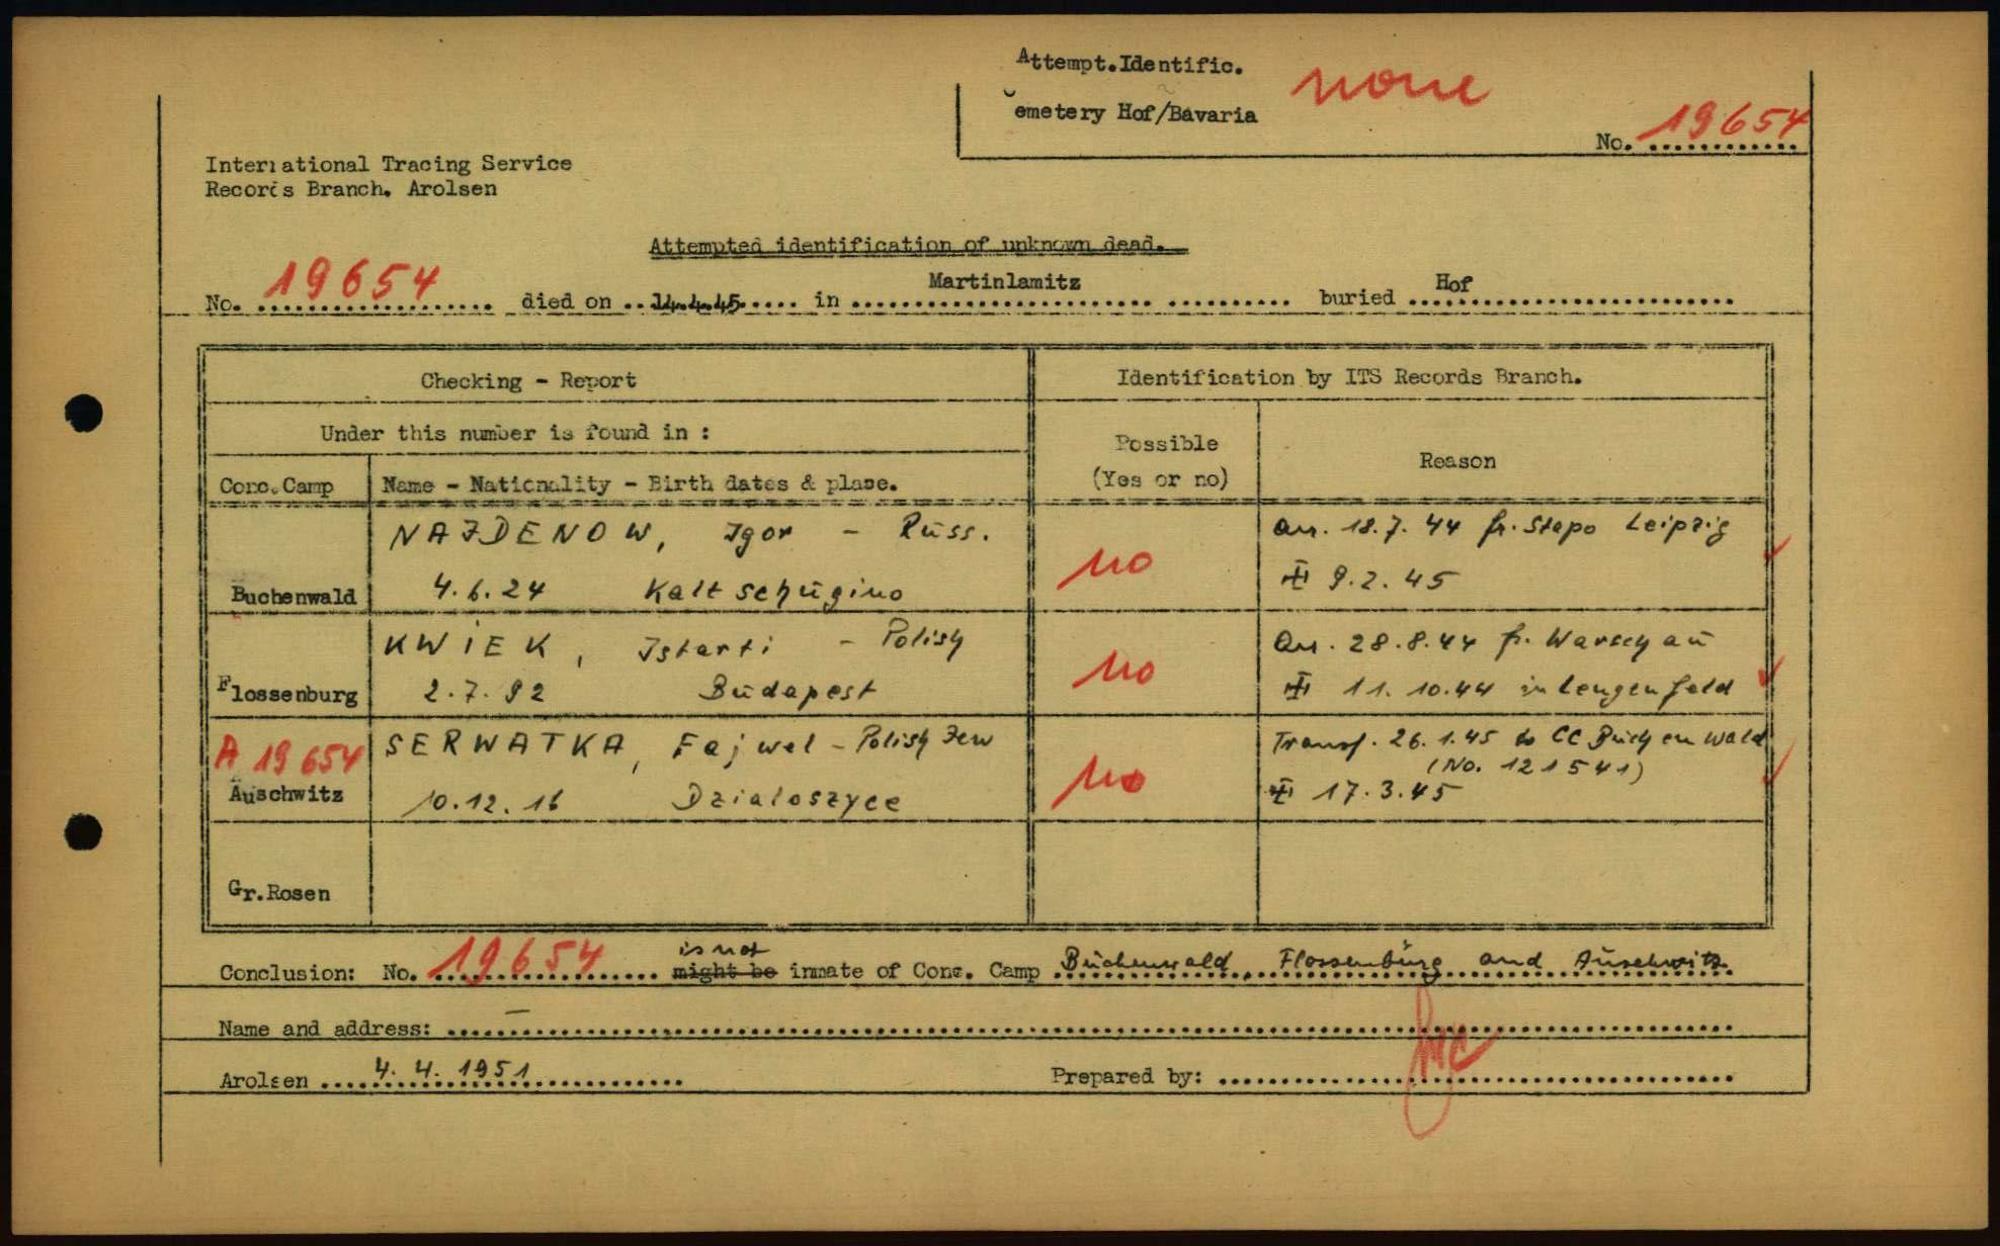 Attempt.Identific.
none
Cemetery Hof/Bavaria
No. 19654
International Tracing Service
Records Branch. Arolsen
Attempted identification of unknown dead.
No. 19654 died on 14.4.45 in Martinlamitz buried Hof
Checking - Report
Identification by ITS Records Branch.
Under this number is found in :
Possible
(Yes or no)
Reason
Conc.Camp
Name - Nationality - Birth dates & place.
Buchenwald
NAJDENOW, Igor - Russ.
4.6.24 Kaltschugino
no
Arr. 18.7.44 fr. Stapo Leipzig
9.2.45
Flossenburg
KWIEK, Istarti - Polish
2.7.92 Budapest
no
Arr. 28.8.44 fr. Warschau
11.10.44 in Lengenfeld
A 19654
Auschwitz
SERWATKA, Fajwel - Polish Jew
10.12.16 Dzialoszyce
no
Transf. 26.1.45 to CC Buchenwald
(No. 121541)
17.3.45
Gr.Rosen
is not
Conclusion: No. 19654 might be inmate of Conc. Camp Buchenwald, Flossenbürg and Auschwitz
Name and address: —
Arolsen 4.4.1951
Prepared by: